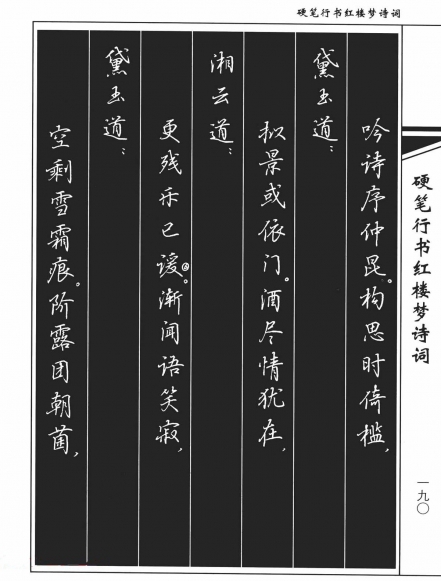 硬笔行书红楼梦诗词
吟诗序仲昆。构思时倚槛，
黛玉道：
拟景或依门。酒尽情犹在，
湘云道：
更残乐已谖②。渐闻语笑寂，
黛玉道：
空剩雪霜痕。阶露团朝菌，
硬笔行书红楼梦诗词
一九〇